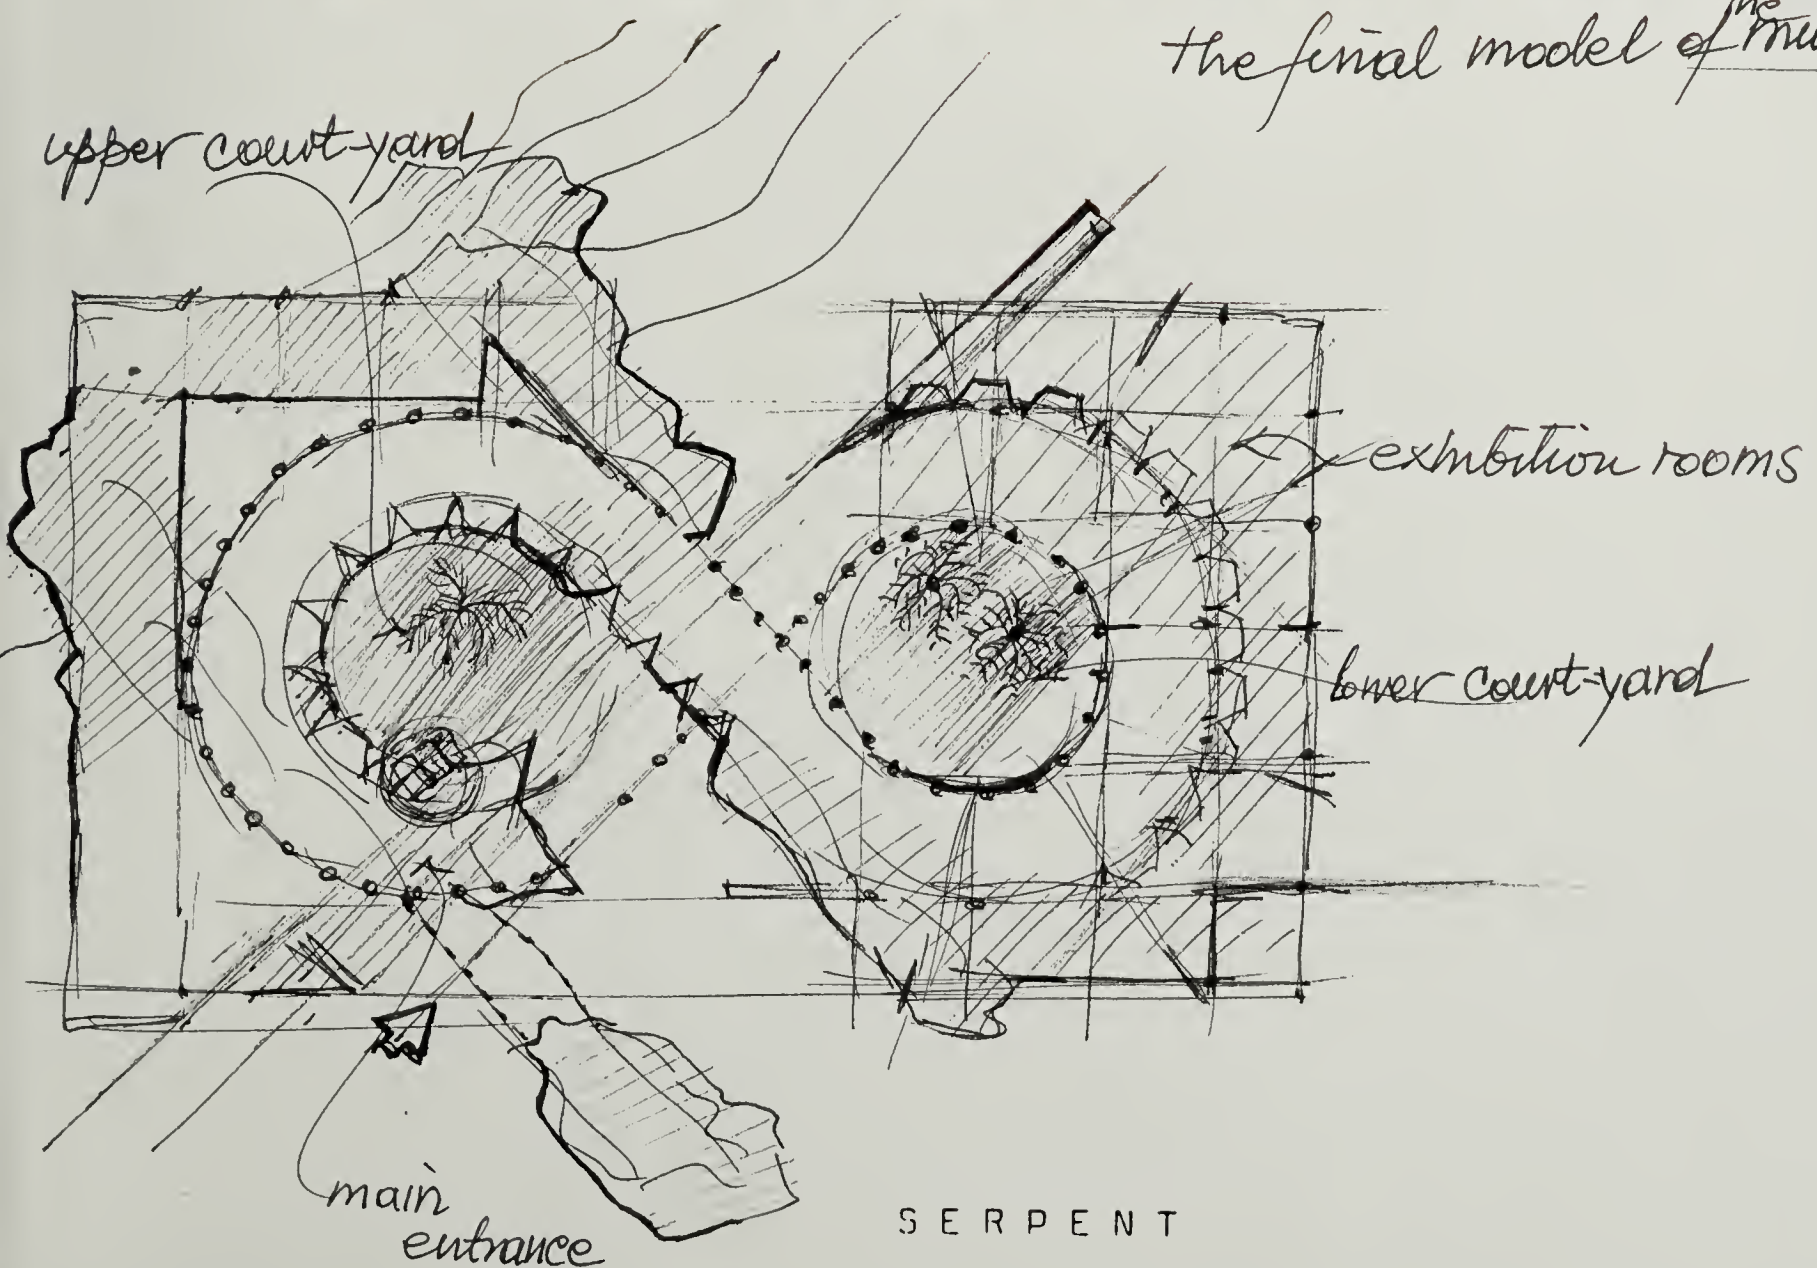 the final model of the
upper court-yard
exhibition rooms
lower court-yard
main
entrance
SERPENT